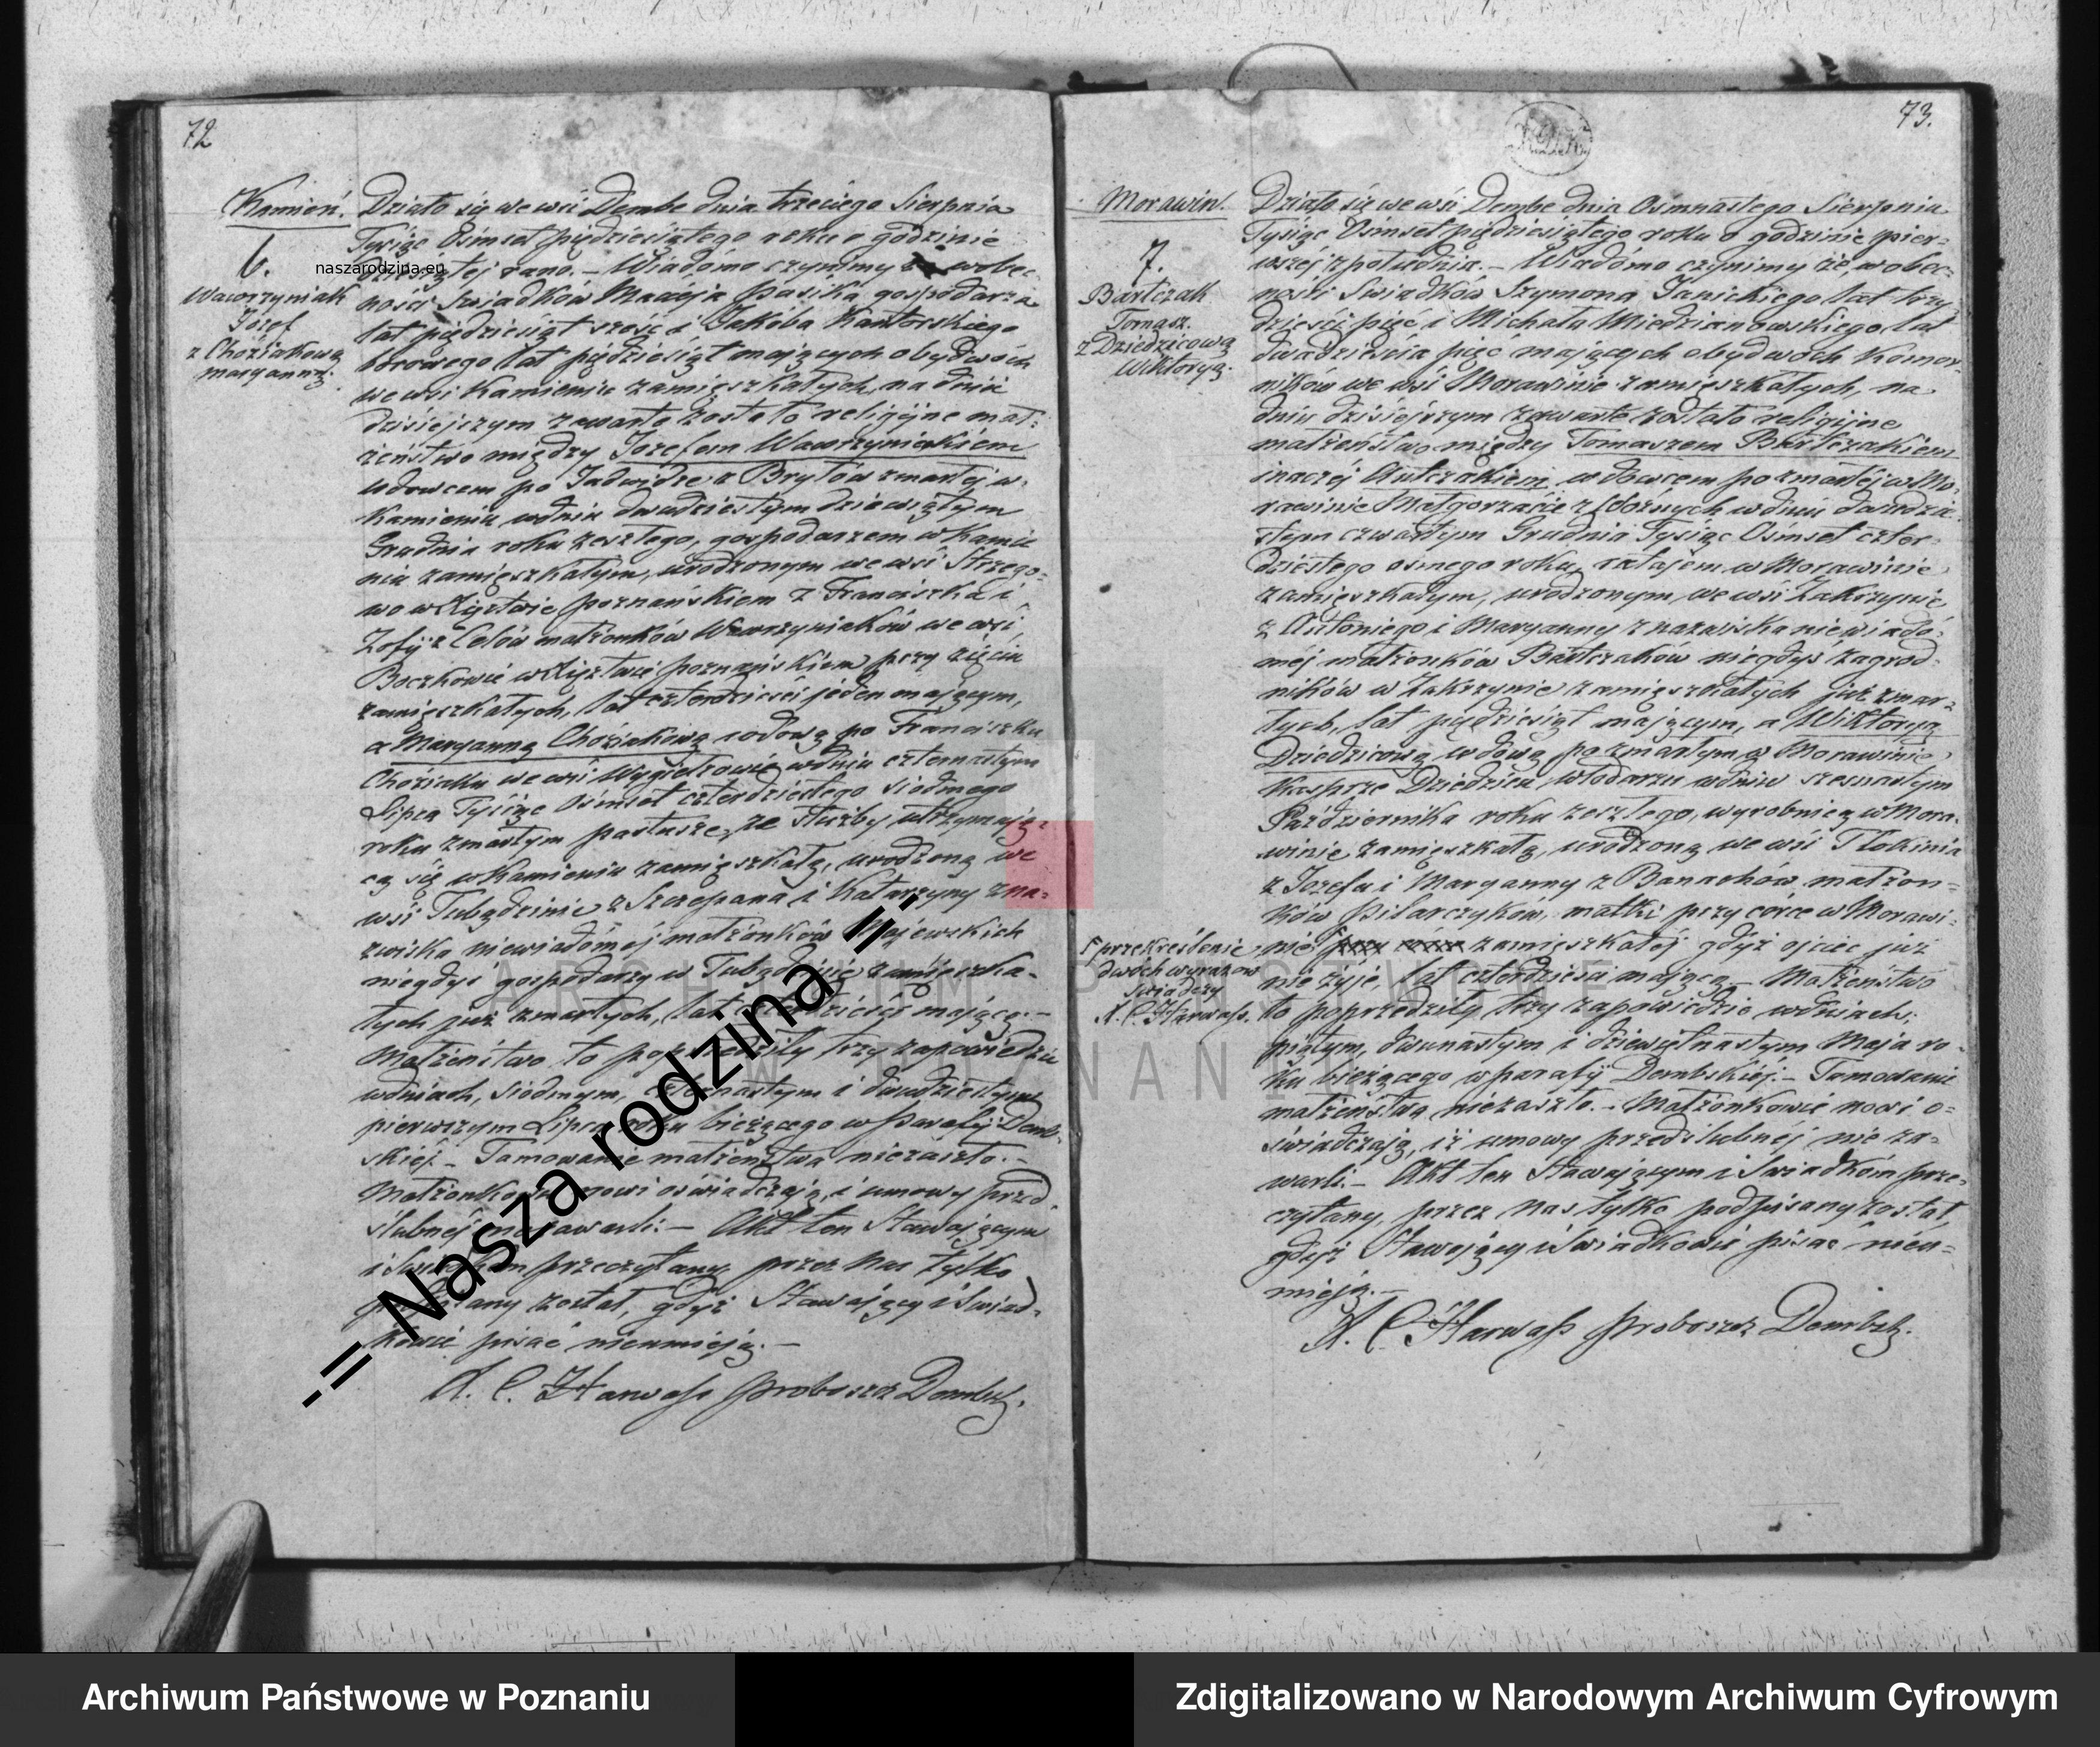 72
Kamień.
6.
Wawrzyniak
Józef
z Choziakową
Maryanną.
Działo się we wsi Dembe dnia trzeciego Sierpnia
Tysiąc Ośmset pięćdziesiątego roku o godzinie
dziesiątej rano. – Wiadomo czynimy wobec-
ności Swiadków Macieja Pasika gospodarza
lat pięćdziesiąt sześć i Jakóba Kantorskiego
borowego lat pięćdziesiąt mających obydwóch
we wsi Kamieniu zamięszkałych, na dniu
dzisiejszym zawarte zostało religijne mał-
żeństwo między Józefem Wawrzyniakiem
wdowcem po Jadwidze z Brylów zmarłej w
Kamieniu wdniu dwudziestym dziewiątym
Grudnia roku zeszłego, gospodarzem w Kamie
niu zamięszkałym, urodzonym we wsi Strzego-
wo w Xięstwie poznańskiem z Franciszka i
Zofij z Celów małżonków Wawrzyniaków we wsi
Boczkowie w Xięztwie poznańskiem przy zięciu
zamięszkałych, lat czterdzieści jeden mającym,
a Maryanną Choziakową wdową po Franciszku
Choziaku we wsi Węgielrowie wdniu czternastym
Lipca Tysiąc Ośmset czterdziestego siodmego
roku zmarłym pastusze, ze służby utrzymują-
cą się w Kamieniu zamięszkałą, urodzoną we
wsi Tubądzinie z Szczepana i Katarzyny zna-
zwiska niewiadomej małżonków Majewskich
niegdyś gospodarzy w Tubądzinie zamięszka-
łych już zmarłych, lat czterdzieści mającą. –
Małżeństwo to poprzedziły trzy zapowiedzie
wdniach, siodmym, czternastym i dwudziestym
pierwszym Lipca roku bieżącego w Parafij Demb-
skiej. – Tamowanie małżeństwa niezaszło. –
Małżonkowie nowi oświadczają, i umowy przed-
ślubnéj niezawarli. – Akt ten Stawającym
i Swiadkom przeczytany przez Nas tylko
podpisany został, gdyż Stawający i Swiad-
kowie pisać nieumieją. –
X. C. Harwass Proboszcz Dembsk.
73.
Morawin.
7.
Bartczak
Tomasz.
z Dziedzicową
Wiktoryą.
Działo się we wsi Dembe dnia Ośmnastego Sierpnia
Tysiąc Ośmset pięćdziesiątego roku o godzinie pier-
wszej z południa. – Wiadomo czynimy że, w obec-
ności Swiadków Szymona Janickiego lat trzy-
dzieści pięć i Michała Miedzianowskiego lat
dwadzieścia pięć mających obydwoch Komor-
ników we wsi Morawinie zamięszkałych, na
dniu dzisiejszym zawarte zostało religijne
małżeństwo między Tomaszem Bartczakiem
inaczej Antczakiem wdowcem po zmarłéj w Mo-
rawinie Małgorzacie z w dniu dwudzie-
stym czwartym Grudnia Tysiąc Ośmset czter-
dziestego osmego roku, ratajem w Morawinie
zamięszkałym, urodzonym we wsi Zakrzynie
z Antoniego i Maryanny z nazwiska niewiado-
méj małżonków Bartczaków niegdyś zagrod-
ników w Zakrzynie zamięszkałych już zmar-
łych, lat pięćdziesiąt mającym, a Wiktoryą
Dziedzicową wdową po zmarłym w Morawinie
Kasprze Dziedzicu włodarzu wdniu szesnastym
Października roku zeszłego, wyrobnicą w Mora-
winie zamięszkałą, urodzoną we wsi Tłokinia
z Jozefa i Maryanny z Banachów małżon-
ków Pilarczyków, matki przy córce w Morawi-
nie przy córce zamięszkałéj gdyż ojciec już
nie żyje, lat czterdzieści mającą. – Małżeństwo
to poprzedziły trzy zapowiedzie wdniach;
piątym, dwunastym i dziewiętnastym Maja ro-
ku bieżącego w parafij Dembskiéj. – Tamowanie
małżeństwa niezaszło. – Małżonkowie nowi o-
świadczają, iż umowy przedślubnéj nie za-
warli. – Akt ten Stawającym i Swiadkom prze-
czytany, przez Nas tylko podpisany został,
gdyż Stawający i Swiadkowie pisać nieu-
mieją. –
X. C. Harwass Proboszcz Dembsk.
przekreślenie
dwóch wyrazów
świadczy
X. C. Harwass.
naszarodzina.eu
-= Nasza rodzina =-
ARCHIWUM PAŃSTWOWE
W POZNANIU
Archiwum Państwowe w Poznaniu
Zdigitalizowano w Narodowym Archiwum Cyfrowym